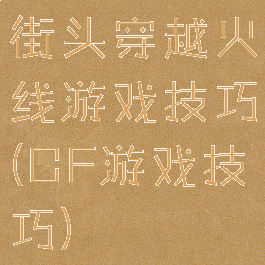 街头穿越火
线游戏技巧
(CF游戏技
巧)